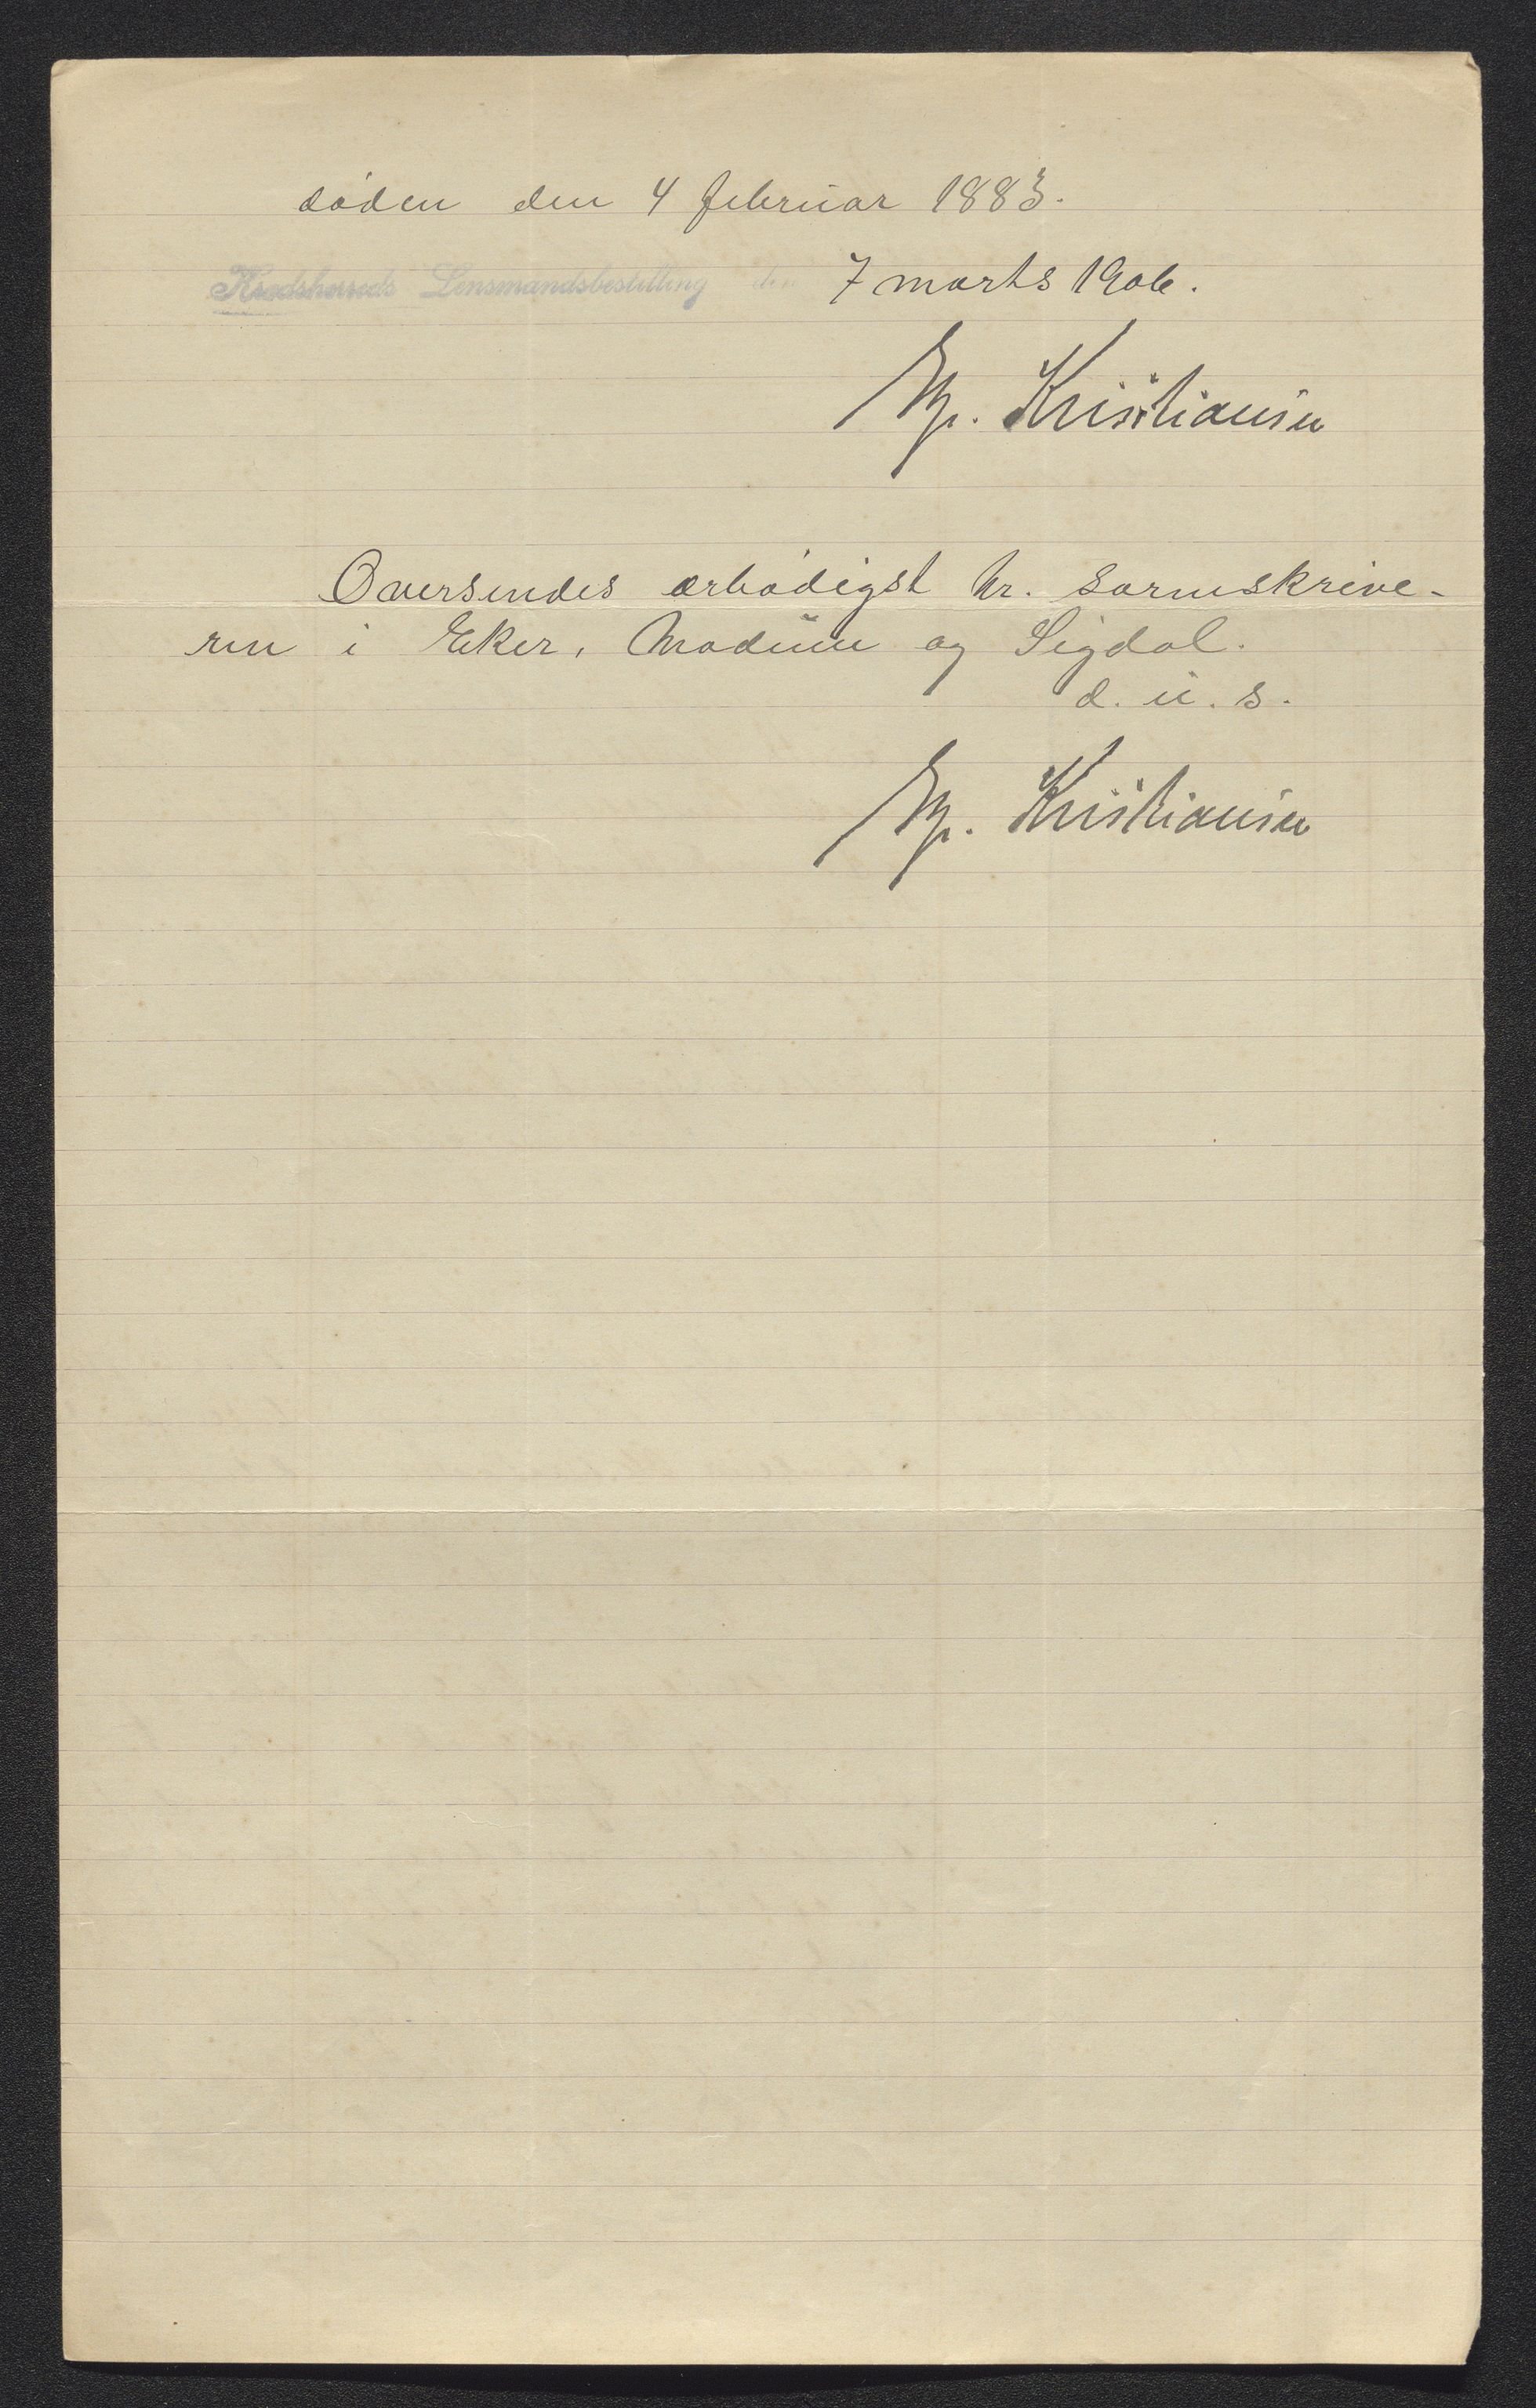 døden den 4 februar 1883.
Krødsherreds Lensmandsbestilling den 7 marts 1906.
Kristiansen
Oversendes ærbødigst hr. sorenskrive-
ren i Eker, Modum og Sigdal.
d. u. s.
Kristiansen